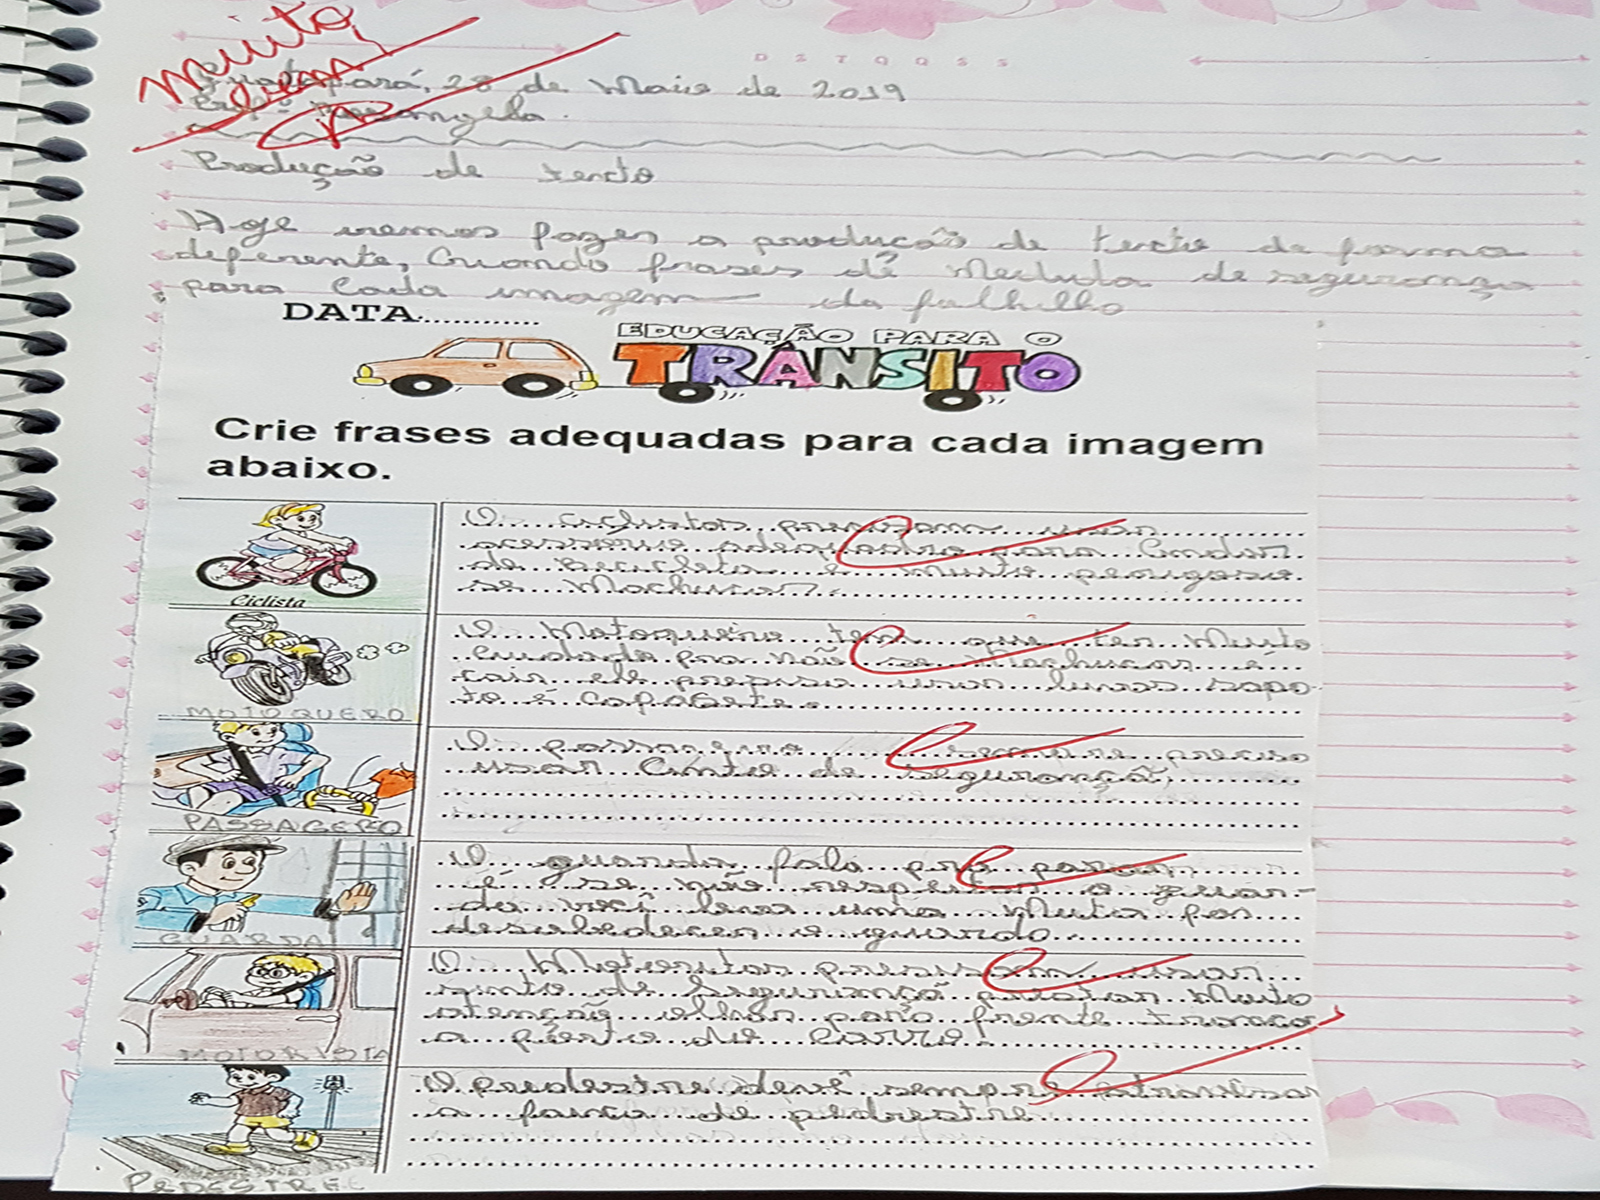 Muito
bem
DEZOOSS
28 de Maio de 2019
Produção de texto
Hoje iremos fazer a produção de texto de forma
deferente, Criando frases dê Medida de segurança
para Cada imagem da folhilha
DATA.............
EDUCAÇÃO PARA O
TRÂNSITO
Crie frases adequadas para cada imagem
abaixo.
O ciclistas precisam usar
acessorio adequadro para Candar
de bicicleta é muito perigoso
se Machucar.
Ciclista
O Motoqueiro tem que ter Muito
Cuidado pra não se Machucar e
cair ele precisa usar luvas sapa
to é capacete.
MOTOQUERO
O passageiro sempre preciso
usar Cinto de segurança,
PASSAGERO
O guarda fala pra parar
é se não respeitar o guar-
da você leva uma Muta por
desobedecer o guarda.
GUARDA
O Motoristas presisam usar
sinto de Segurança prestar Muito
atenção olhar para frente trancar
a porta do Carro.
MOTORISTA
O pedestre devê sempre atravisar
a faixa de pedrestre
PEDESTREE